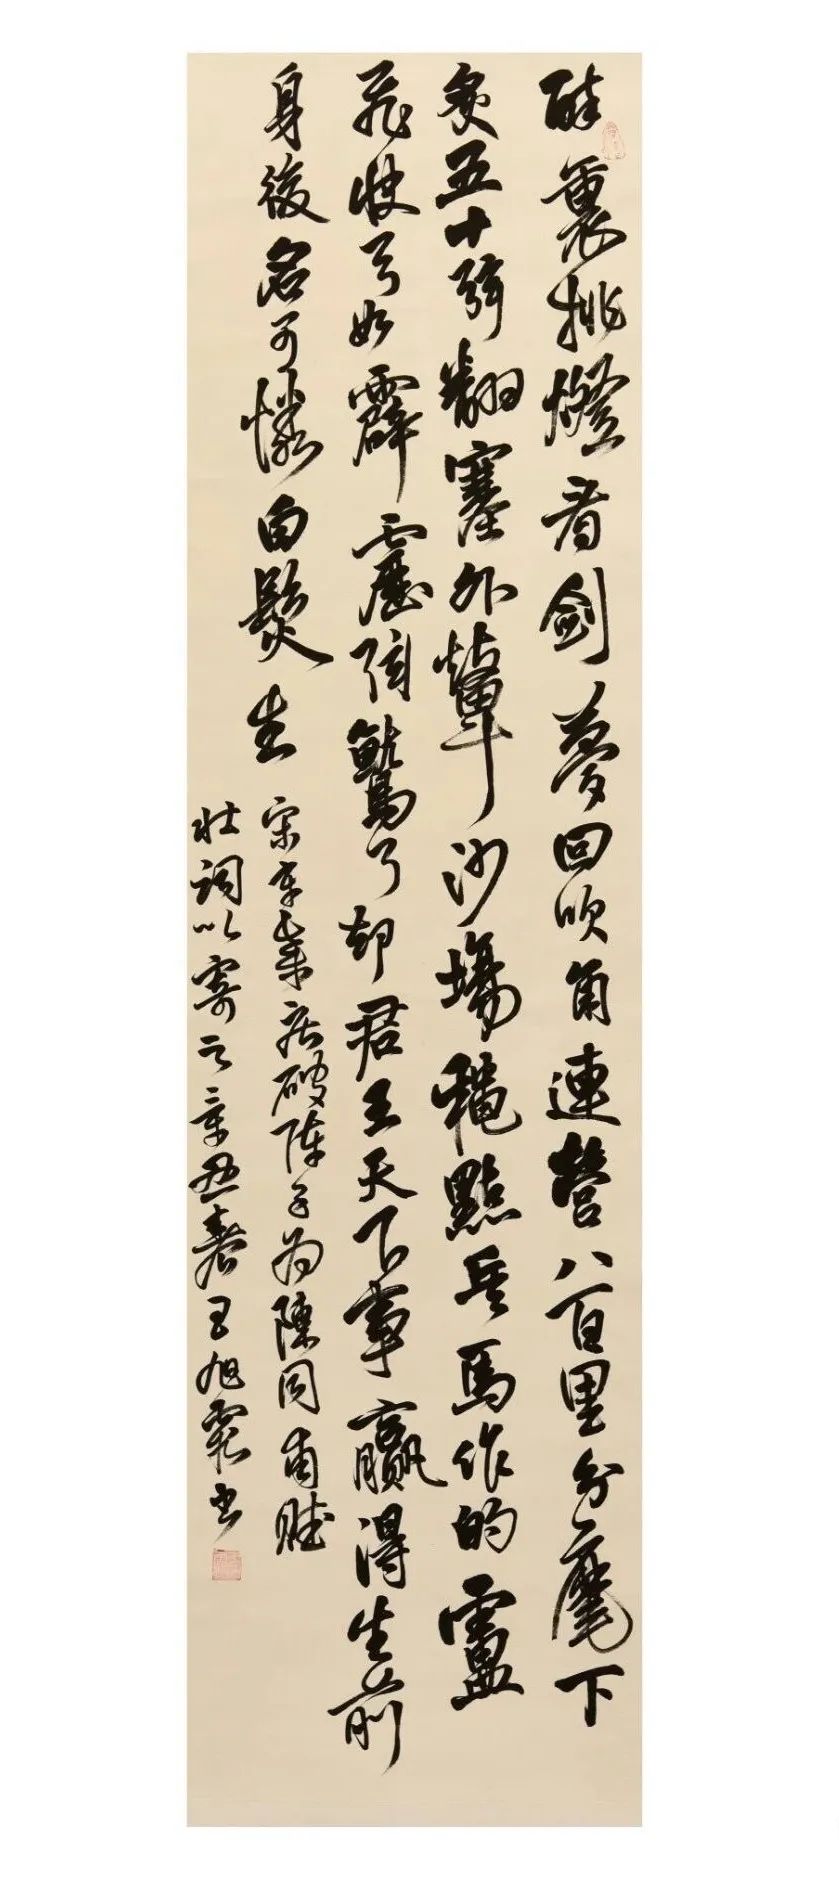 醉裏挑燈看劍夢回吹角連營八百里分麾下
炙五十弦翻塞外聲沙場穐點兵馬作的盧
飛快弓如霹靂弦驚了却君王天下事贏得生前
身後名可憐白髮生
宋辛棄疾破陣子為陳同甫賦
壯詞以寄之辛丑春王旭霞書